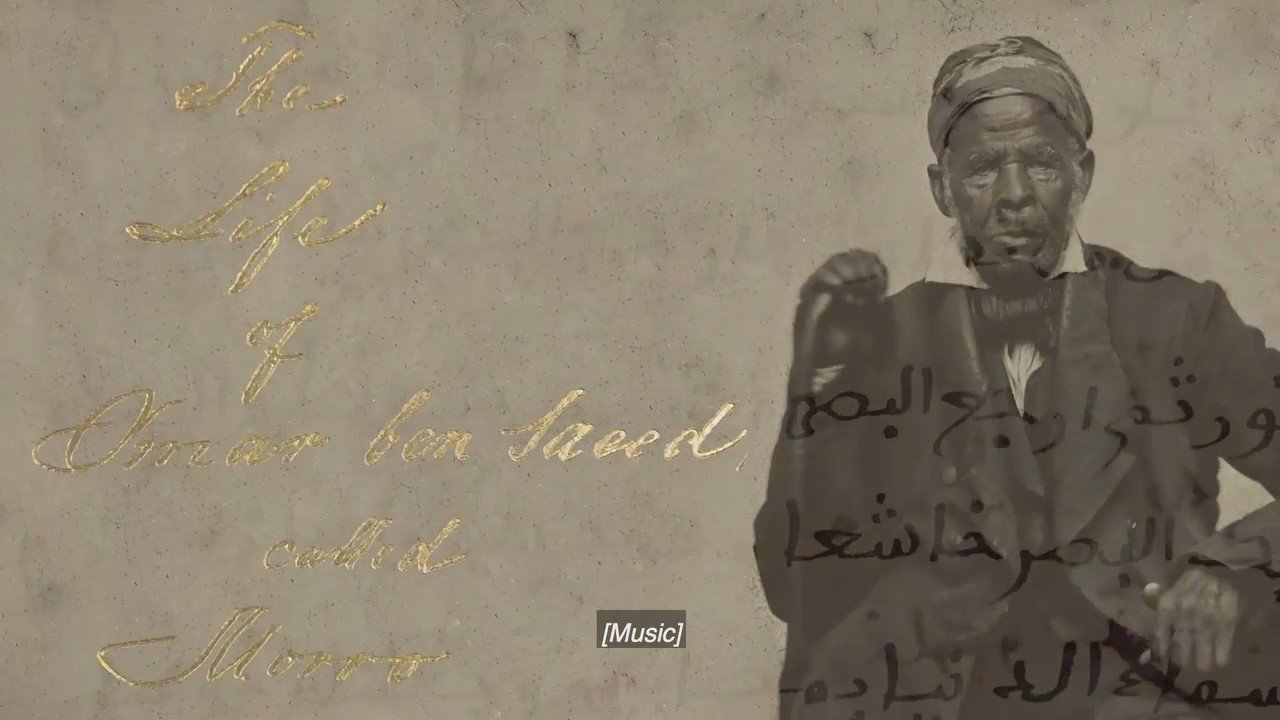 The
Life
of
Omar ben Saeed,
called
Morro
ثم ارجع البصر
البصر خاشعا
[Music]